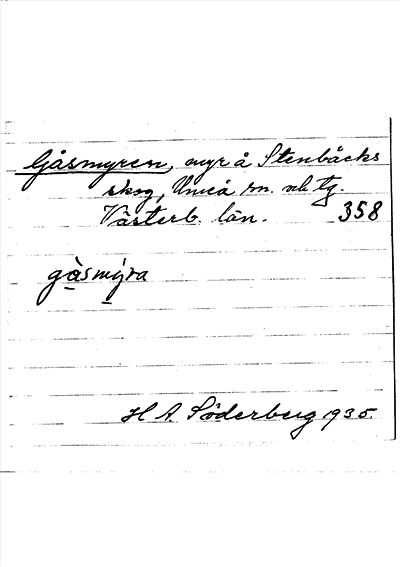 Gåsmyren, myr å Stenbäcks
skog, Umeå sn. o.
Västerb. län. 358
gåsmýra
H A. Söderberg 1935.